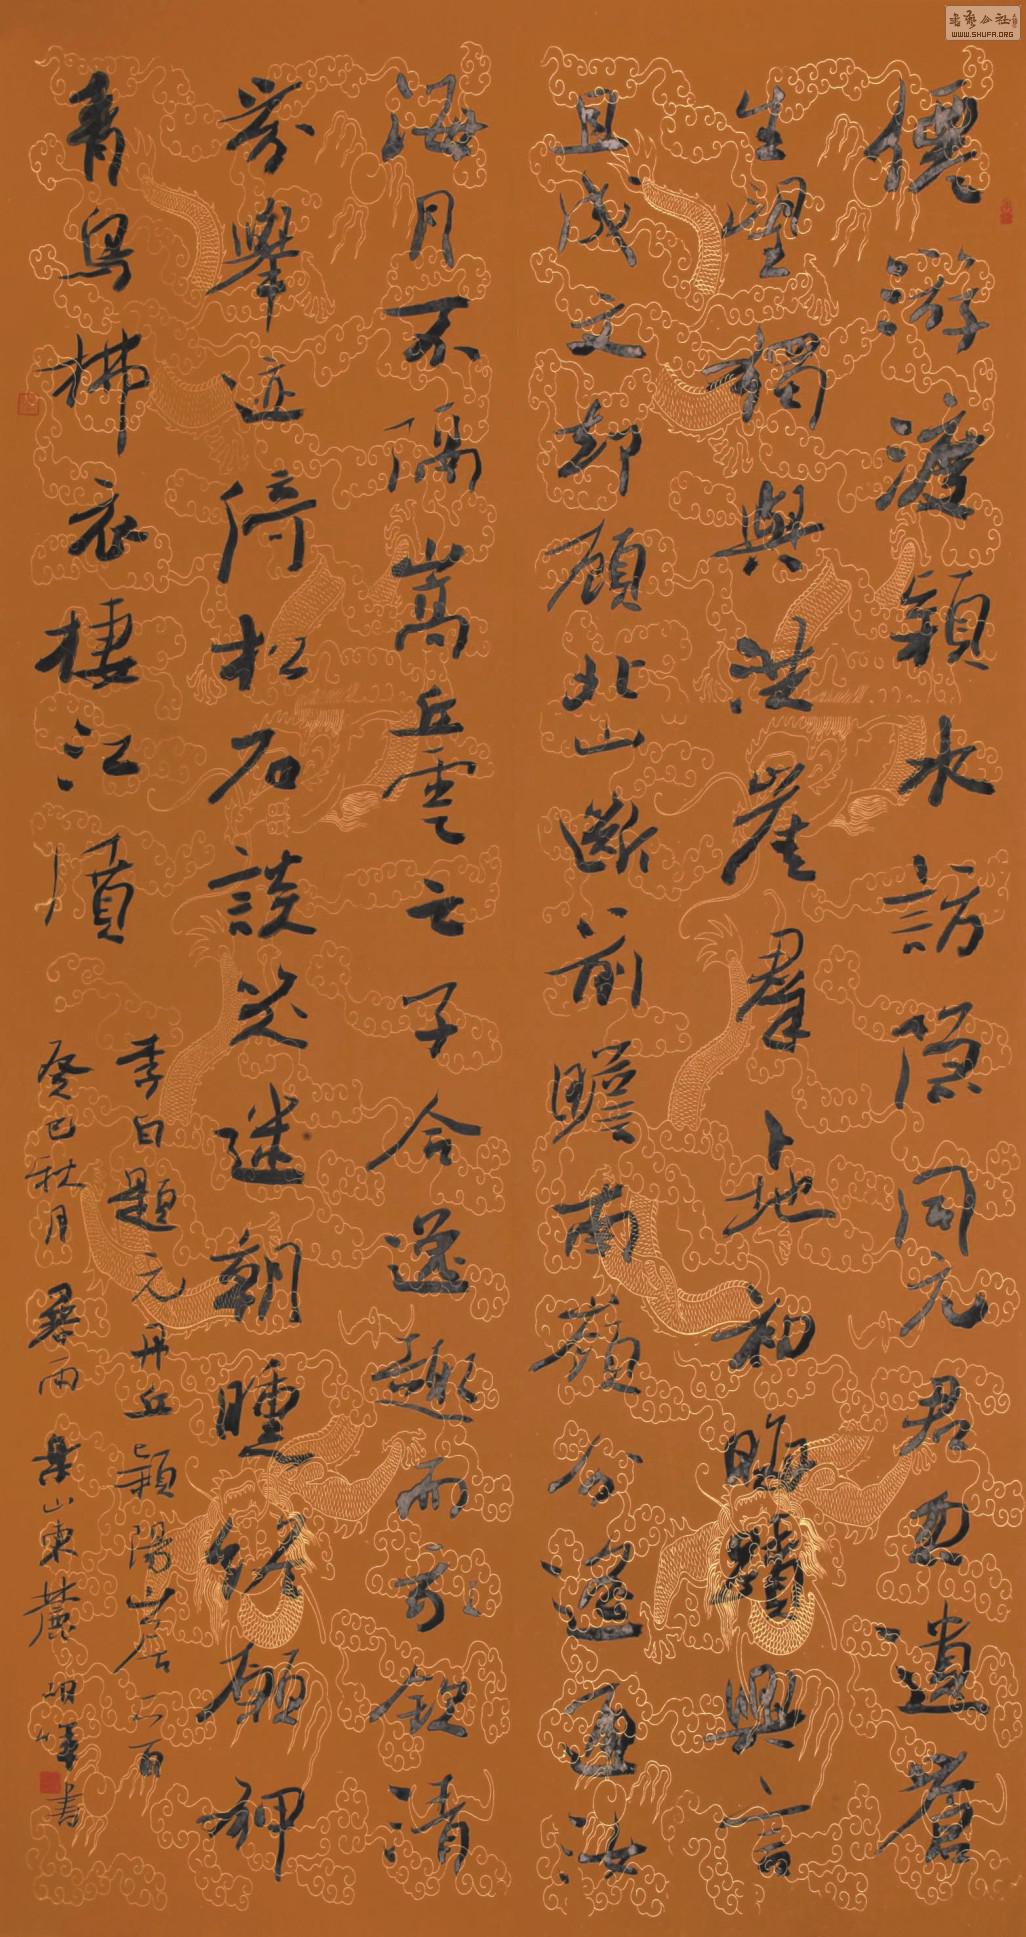 僊游渡潁水訪隱同元君忽遺蒼
生望獨與洪崖羣卜地初晦蹟興言
且成文却顧北山斷前瞻南嶺分遥通汝
海月不隔嵩丘雲之子合逸趣而我欽清
芬舉迹倚松石談笑迷朝曛終願狎
青鳥拂衣棲江濆
李白題元丹丘潁陽山居一首
癸巳秋月 雨 山東麓 書
書藝公社
WWW.SHUFA.ORG